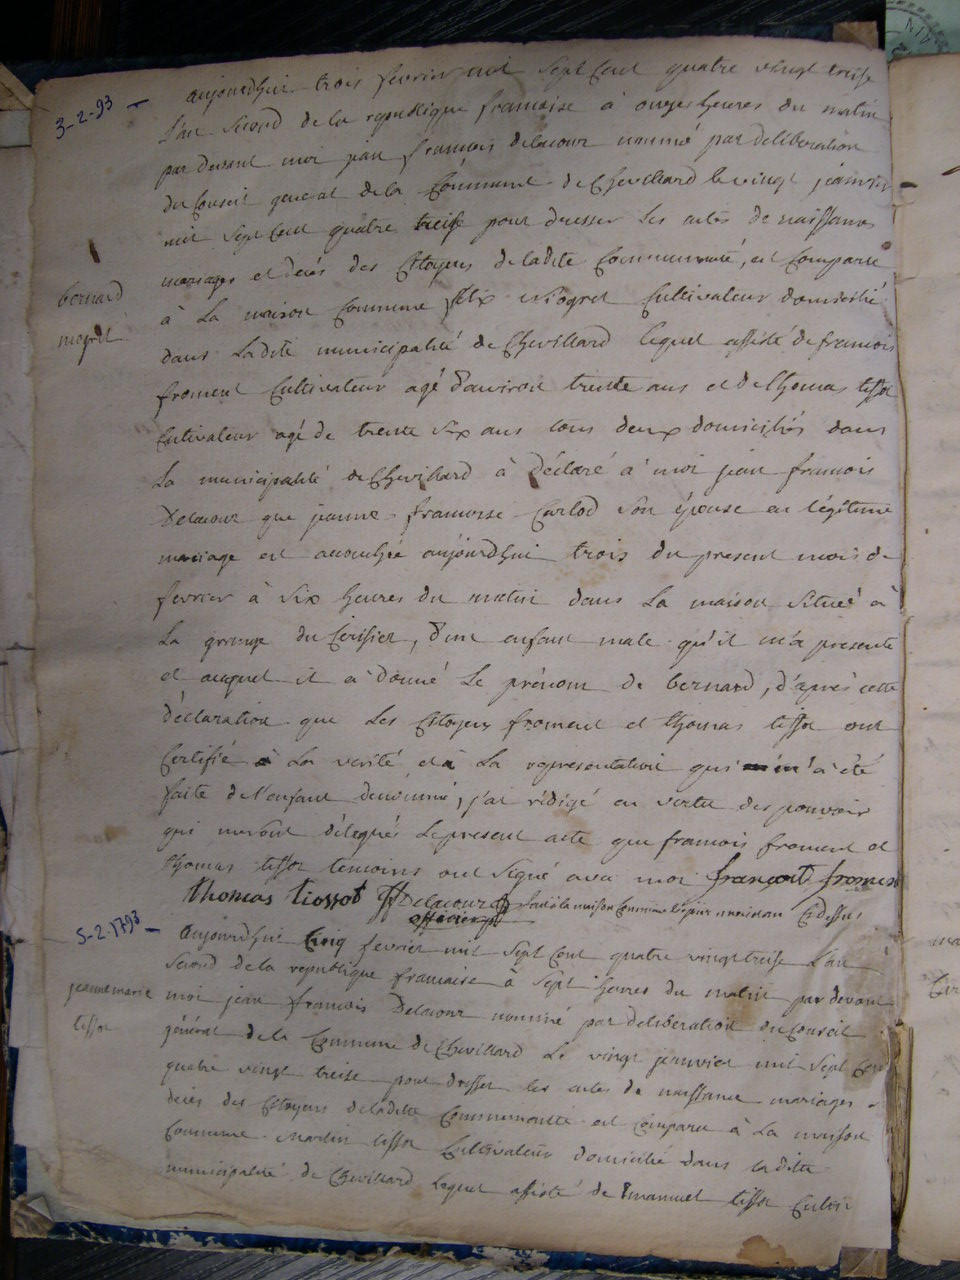 3-2-93
aujourdhui trois fevrier mil sept cent quatre vingt treise
l'an second de la republique francaise à onze heures du matin
par devant moi jean francois delacour nommé par deliberation
du Conseil general de la Commune de Chevillard le vingt janvier
mil sept cent quatre treise pour dresser les actes de naissances
mariages et decés des Citoyens de ladite Communauté, est Comparu
bernard
à La maison Commune felix Cultivateur domicilié
dans Ladite municipalité de Chevillard lequel assisté de francois
froment Cultivateur agé d'environ trente ans et de thomas tissot
Cultivateur agé de trente six ans tous deux domiciliés dans
La municipalité de Chevillard à déclaré à moi jean francois
Delacour que jeanne francoise Carlod son épouse en légitime
mariage est accouchée aujourdhui trois du present mois de
fevrier à six heures du matin dans La maison située à
La grange du Cerisier, d'un enfant male qu'il m'a presenté
et auquel il a donné Le prénom de bernard, d'après cette
déclaration que Les Citoyens froment et thomas tissot ont
Certifié à La verité et à La representation qui m'a été
faite de l'enfant denommé, j'ai rédigé en vertu des pouvoir
qui me sont délegués Le present acte que francois froment et
thomas tissot temoins ont signé avec moi françoit froment
thomas tiossot Delacour fait à la maison Commune les jour mois et an Cidessus
officier
5-2-1793
aujourdhui Cinq fevrier mil sept cent quatre vingt treise L'an
second de la republique francaise à sept heures du matin par devant
jeanne marie
moi jean francois Delacour nommé par deliberation du Conseil
tissot
général de la Commune de Chevillard Le vingt janvier mil sept cen
quatre vingt treise pour dresser les actes de naissance mariages
decés des Citoyens de ladite Communauté est Comparu à La maison
Commune Martin tissot Cultivateur domicilié dans ladite
municipalité de Chevillard Lequel assisté de Emanuel tissot Culti